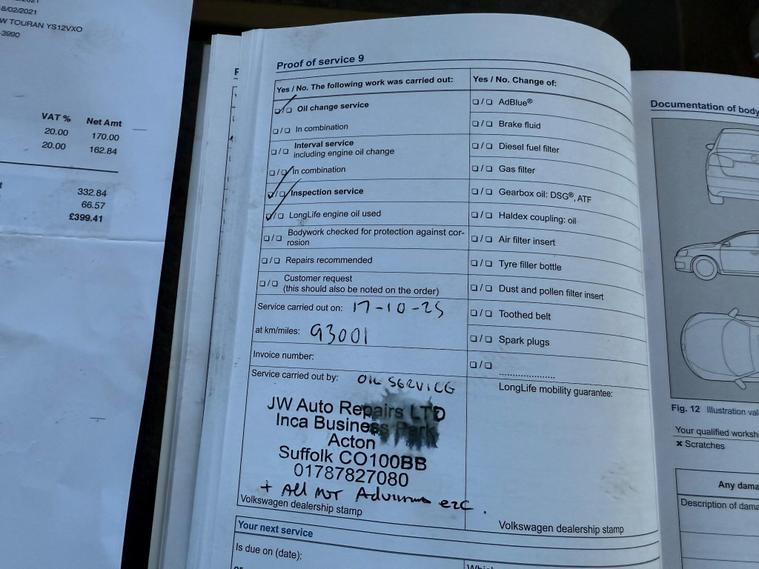 8/02/2021
W TOURAN YS12VXO
-3990
VAT % Net Amt
20.00 170.00
20.00 162.84
332.84
66.57
£399.41
Proof of service 9
Yes / No. The following work was carried out:
☐/☐ Oil change service
☐/☐ In combination
☐/☐ Interval service
including engine oil change
☐/☐ In combination
☐/☐ Inspection service
☐/☐ LongLife engine oil used
☐/☐ Bodywork checked for protection against cor-
rosion
☐/☐ Repairs recommended
☐/☐ Customer request
(this should also be noted on the order)
Service carried out on: 17-10-25
at km/miles: 93001
Invoice number:
Service carried out by: OIL SERVICE
JW Auto Repairs LTD
Inca Business Park
Acton
Suffolk CO100BB
01787827080
+ All MOT etc.
Volkswagen dealership stamp
Yes / No. Change of:
☐/☐ AdBlue®
☐/☐ Brake fluid
☐/☐ Diesel fuel filter
☐/☐ Gas filter
☐/☐ Gearbox oil: DSG®, ATF
☐/☐ Haldex coupling: oil
☐/☐ Air filter insert
☐/☐ Tyre filler bottle
☐/☐ Dust and pollen filter insert
☐/☐ Toothed belt
☐/☐ Spark plugs
☐/☐ ....................
LongLife mobility guarantee:
Volkswagen dealership stamp
Your next service
Is due on (date):
Documentation of body
Fig. 12 Illustration val
Your qualified worksh
× Scratches
Any dama
Description of dama